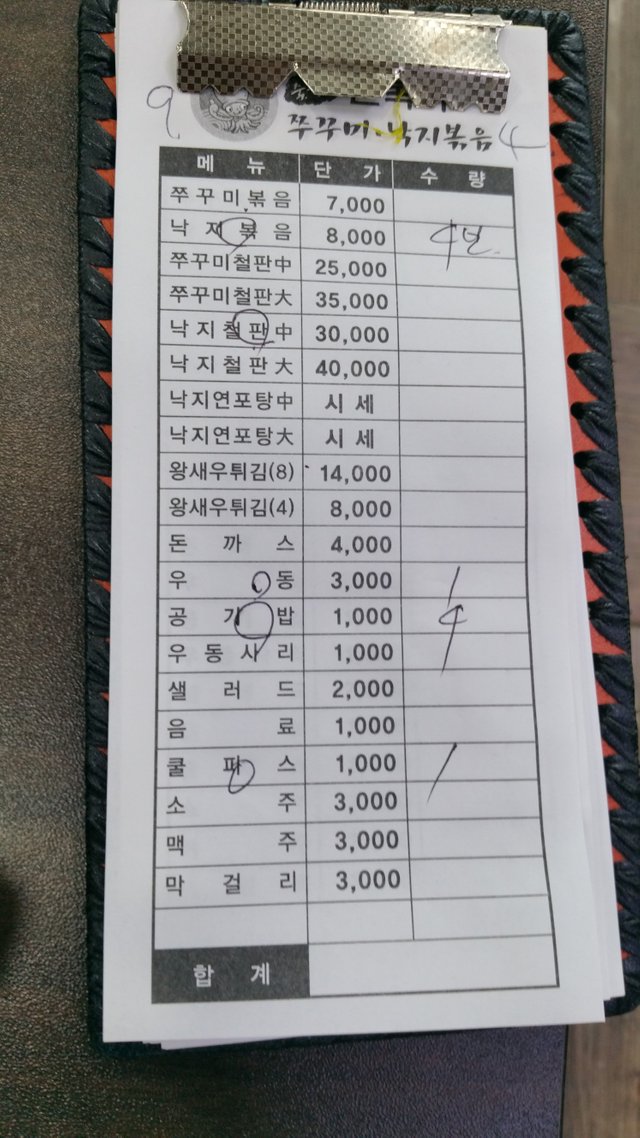 9
쭈꾸미·낙지볶음 4
메뉴 단가 수량
쭈꾸미볶음 7,000
낙지볶음 8,000 4인
쭈꾸미철판中 25,000
쭈꾸미철판大 35,000
낙지철판中 30,000
낙지철판大 40,000
낙지연포탕中 시세
낙지연포탕大 시세
왕새우튀김(8) 14,000
왕새우튀김(4) 8,000
돈까스 4,000
우동 3,000 1
공기밥 1,000 4
우동사리 1,000
샐러드 2,000
음료 1,000
쿨피스 1,000 1
소주 3,000
맥주 3,000
막걸리 3,000
합계